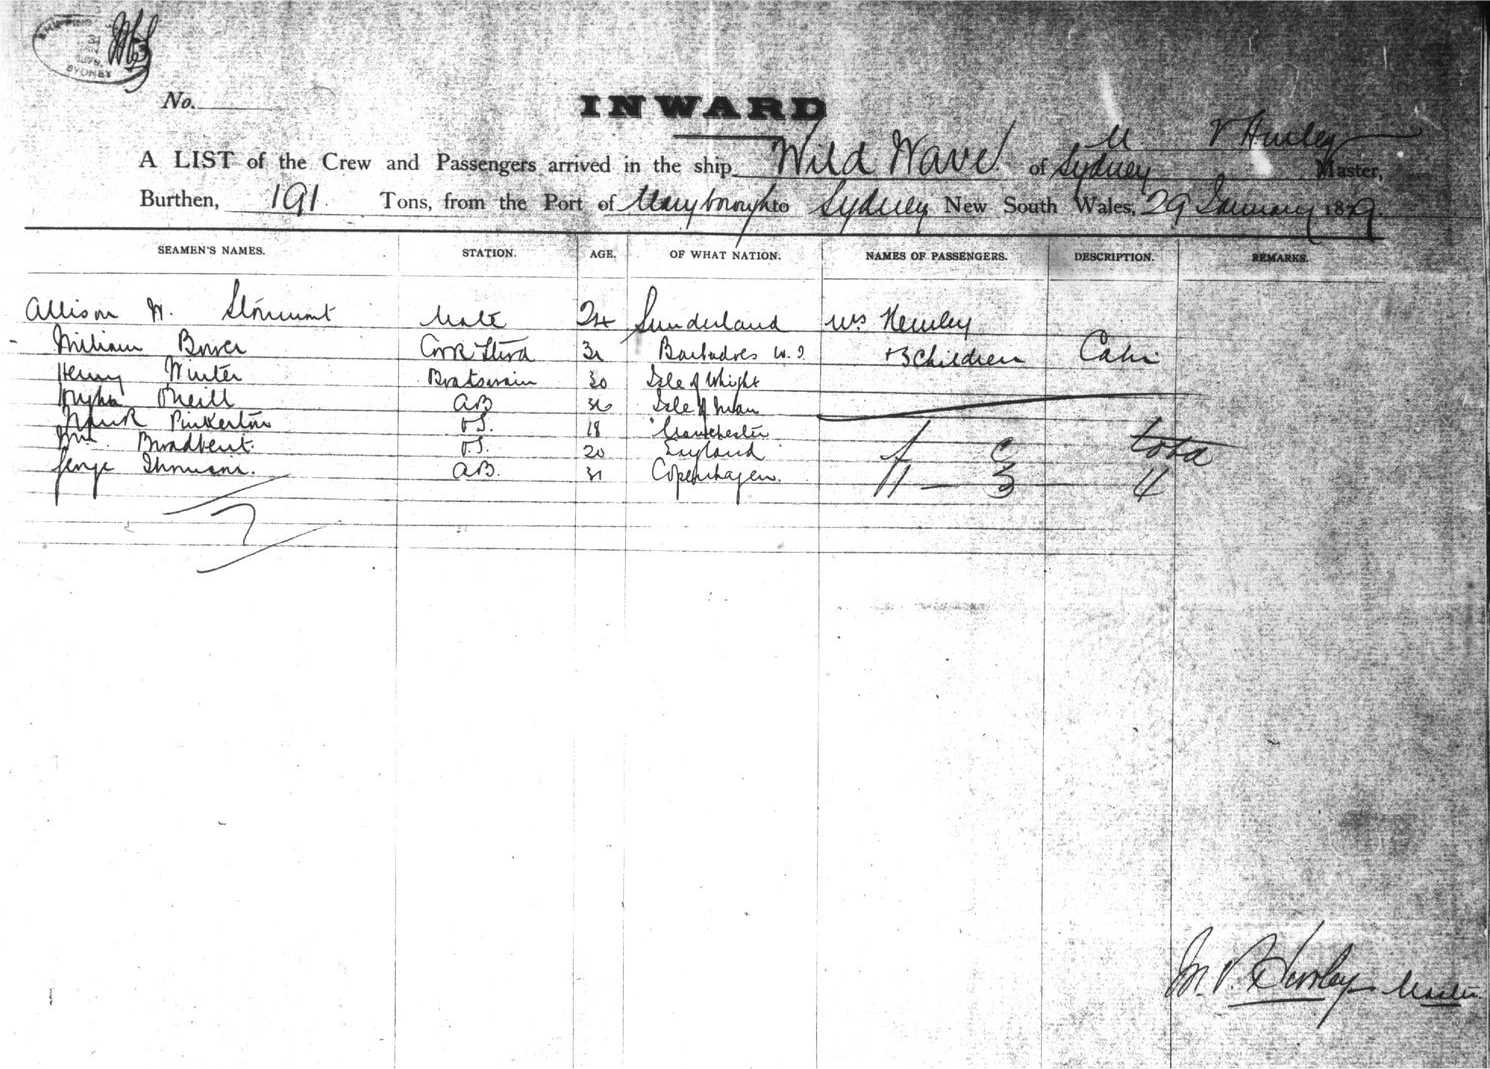 SHIPPING
31
SYDNEY
No.
INWARD
M V Hurley
A LIST of the Crew and Passengers arrived in the ship Wild Wave of Sydney Master,
Burthen, 191 Tons, from the Port of Maryborough to Sydney New South Wales, 29 January 1879.
SEAMEN'S NAMES. STATION. AGE. OF WHAT NATION. NAMES OF PASSENGERS. DESCRIPTION. REMARKS.
Allison W. Stormont Mate 24 Sunderland Mrs Hurley
William Bower Cook Stwd 31 Barbadoes W.I. + 3 Children Cabin
Henry Winter Boatswain 30 Isle of Whight
Hugh Oneill AB 36 Isle of Man
Frank Pinkerton O.S. 18 Manchester
Wm. Broadbent O.S. 20 England f c total
George Thomson. AB. 31 Copenhagen. 1 — 3 4
7
M. V. Hurley Master